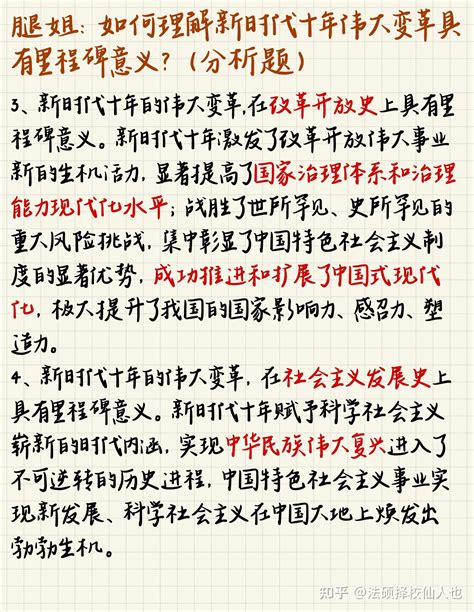 腿姐：如何理解新时代十年伟大变革具
有里程碑意义？（分析题）
3、新时代十年的伟大变革，在改革开放史上具有里
程碑意义。新时代十年激发了改革开放伟大事业
新的生机活力，显著提高了国家治理体系和治理
能力现代化水平；战胜了世所罕见、史所罕见的
重大风险挑战，集中彰显了中国特色社会主义制
度的显著优势，成功推进和扩展了中国式现代
化，极大提升了我国的国家影响力、感召力、塑
造力。
4、新时代十年的伟大变革，在社会主义发展史上
具有里程碑意义。新时代十年赋予科学社会主义
崭新的时代内涵，实现中华民族伟大复兴进入了
不可逆转的历史进程，中国特色社会主义事业实
现新发展、科学社会主义在中国大地上焕发出
勃勃生机。
知乎 @法硕择校仙人也